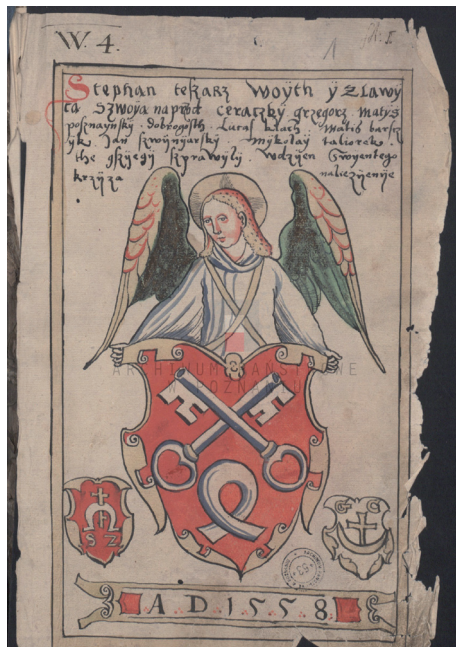 W. 4.
1
Stephan tesarz Woÿth ÿ z Lawÿ
ca Szwoÿa naprod Ceraczkÿ grzegorz matÿs
posznaÿnskÿ dobrogosth Lucas klach Matis barscz
ÿk Jan szwÿnÿarskÿ Mikolaÿ taliorek
the gksÿegÿ sprawÿlÿ Wdzÿen Swÿentego
krzÿza nalezÿenÿe
ARCHIWUM PAŃSTWOWE
W POZNANIU
S Z
G G
A D 1 5 5 8